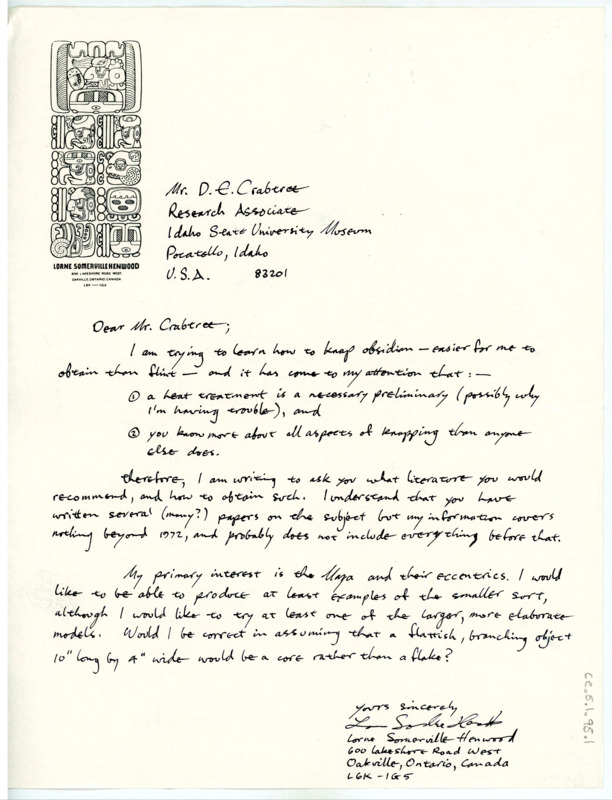 LORNE SOMERVILLE HENWOOD
600 LAKESHORE ROAD WEST
OAKVILLE, ONTARIO, CANADA
L6K — 1G5
Mr. D. E. Crabtree
Research Associate
Idaho State University Museum
Pocatello, Idaho
U.S.A. 83201
Dear Mr. Crabtree;
I am trying to learn how to knap obsidian — easier for me to
obtain than flint — and it has come to my attention that :—
① a heat treatment is a necessary preliminary (possibly why
I'm having trouble), and
② you know more about all aspects of knapping than anyone
else does.
therefore, I am writing to ask you what literature you would
recommend, and how to obtain such. I understand that you have
written several (many?) papers on the subject but my information covers
nothing beyond 1972, and probably does not include everything before that.
My primary interest is the Maya and their eccentrics. I would
like to be able to produce at least examples of the smaller sort,
although I would like to try at least one of the larger, more elaborate
models. Would I be correct in assuming that a flattish, branching object
10" long by 4" wide would be a core rather than a flake?
yours sincerely
Lorne Somerville Henwood
600 Lakeshore Road West
Oakville, Ontario, Canada
L6K - 1G5
cc.5.1.95.1